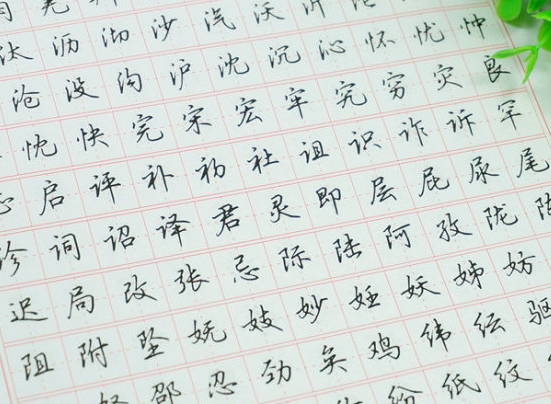 汰沥沏沙汽沃沂
沧没沟沪沈沉沁怀忧忡
忱快完宋宏牢究穷灾良
启评补初社诅识诈诉罕
诊词诏译君灵即层屁尿尾
迟局改张忌际陆阿孜陇
阻附坠妩妓妙妊妖姊妨
邵忍劲矣鸡纬纭驱
纷纸纹